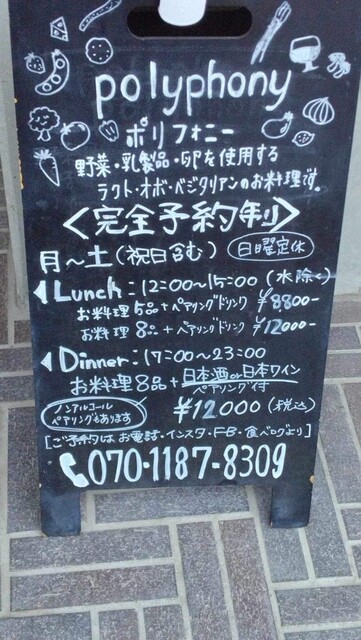 polyphony
ポリフォニー
野菜・乳製品・卵を使用する
ラクト・オボ・ベジタリアンのお料理です。
<完全予約制>
月〜土(祝日含む) 日曜定休
Lunch:12:00〜15:00(水除く)
お料理5品+ペアリングドリンク ¥8800-
お料理8品+ペアリングドリンク ¥12000-
Dinner:17:00〜23:00
お料理8品+日本酒or日本ワイン
ペアリング付
ノンアルコール
ペアリングもあります
¥12,000(税込)
[ご予約はお電話・インスタ・FB・食べログより]
070-1187-8309